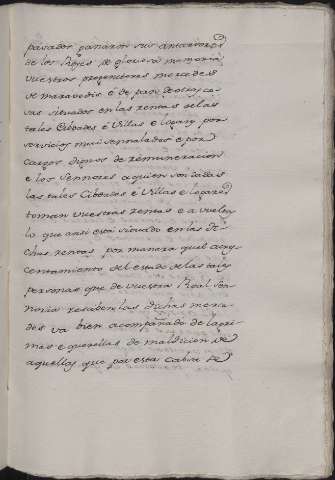 pasados ganaron sus antecesores
de los Reyes de gloriosa memoria
vuestros progenitores mercedes
de maravedis é de pan, de otras co-
sas situados en las rentas de las
tales Cibdades é Villas e logares por
servicios mui señalados e por
cargos dignos de remuneracion
e los Sennores a quien son dadas
las tales Cibdades é Villas e logares
toman vuestras rentas e a vuelta
lo que ansi está situado en las di-
chas rentas por manera quel acre-
centamiento del estado de las tales
personas que de vuestra Real Se-
noria resciben las dichas merce-
des va bien acompañado de lagri-
mas e querellas de maldicion de
aquellos que por esta cabsa se